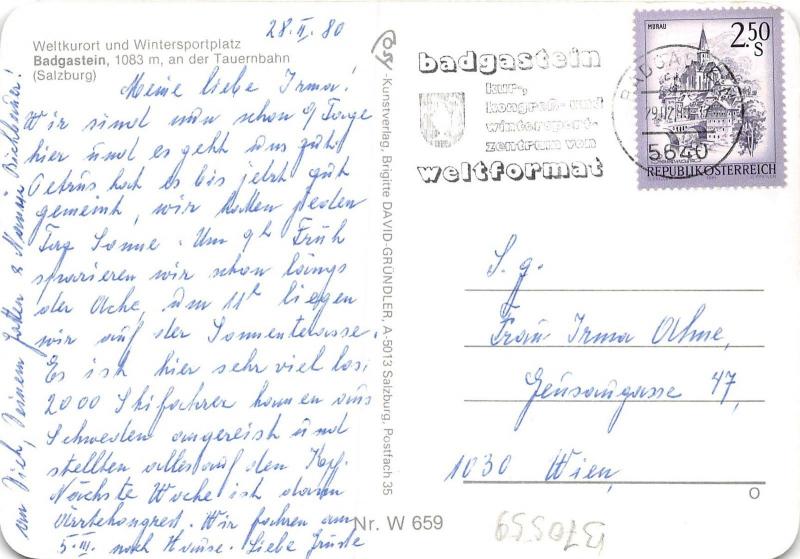 Weltkurort und Wintersportplatz
Badgastein, 1083 m, an der Tauernbahn
(Salzburg)
28.II.80
Meine liebe Irma!
Wir sind nun schon 9 Tage
hier und es geht uns gut,
Petrus hat es bis jetzt gut
gemeint, wir hatten jeden
Tag Sonne. Um 9h Früh
spazieren wir schon längs
der Ache, um 11h liegen
wir auf der Sonnenterasse.
Es ist hier sehr viel los,
2000 Skifahrer kamen aus
Schweden angereist und
stellten alles auf den Kopf.
Nächste Woche ist dann
Ärztekongress. Wir fahren am
5.III. nach Hause. Liebe Grüße
an Dich, Deinem Gatten u.
Cosy
-Kunstverlag, Brigitte DAVID-GRÜNDLER, A-5013 Salzburg, Postfach 35
Nr. W 659
badgastein
kur-,
kongreß- und
wintersport-
zentrum von
weltformat
MURAU
2.50
S
REPUBLIK ÖSTERREICH
BADGASTEIN
5640
S. g.
Frau Irma Ahne,
Geusaugasse 47,
1030 Wien
B70559